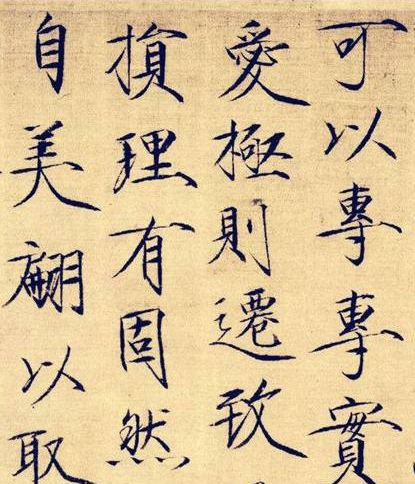 可以專專實
愛極則遷致
損理有固然
自美翩以取